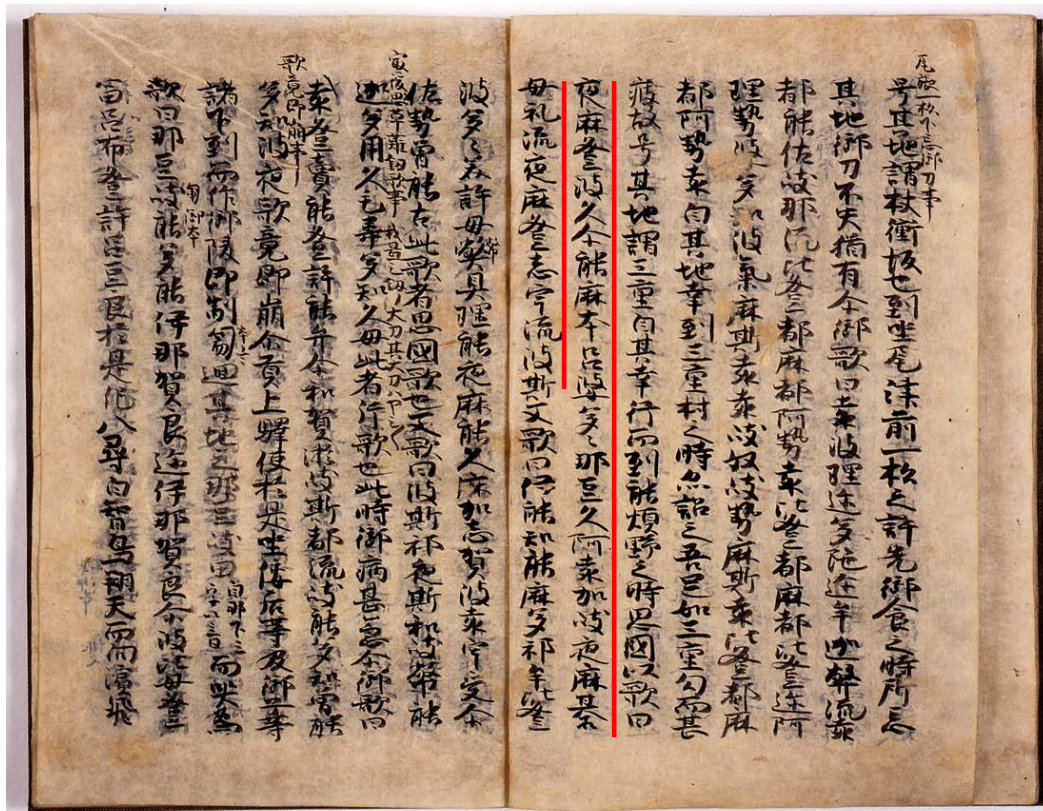 尾張一松下忘御刀事
号其地謂杖衝坂也到坐尾津前一松之許先御食之時所忘
其地御刀不失猶有尓御歌曰袁波理迩多陀迩牟迦弊流袁
都能佐岐那流比登都麻都阿勢袁比登都麻都比登迩阿
理勢波多知波氣麻斯袁袁岐奴岐勢麻斯袁比登都麻
都阿勢袁自其地幸到三重村之時亦詔之吾足如三重勾而甚
疲故号其地謂三重自其幸行而到能煩野之時思國以歌曰
夜麻登波久尓能麻本呂婆多々那豆久阿袁加岐夜麻碁
母礼流夜麻登志宇流波斯又歌曰伊能知能麻多祁牟比登
波多々美許母弊具理能夜麻能久麻加志賀波袁宇受尓
佐勢曽能古此歌者思國歌也又歌曰波斯祁夜斯和岐幣能
最後思草薙詞歌事
迦多用久毛韋多知久母此者片歌也此時御病甚急尓御歌曰
袁登賣能登許能弁尓和賀淤岐斯都流岐能多知曽能
歌竟即崩事
多知波夜歌竟即崩尓貢上驛使於是坐倭后等及御子等
諸下到而作御陵即匍匐迴其地之那豆岐田 自那下三字以音 而哭為
歌曰那豆岐能多能伊那賀良迩伊那賀良尓波比母登
富呂布登許呂豆良於是化八尋白智鳥翔天而向濱飛